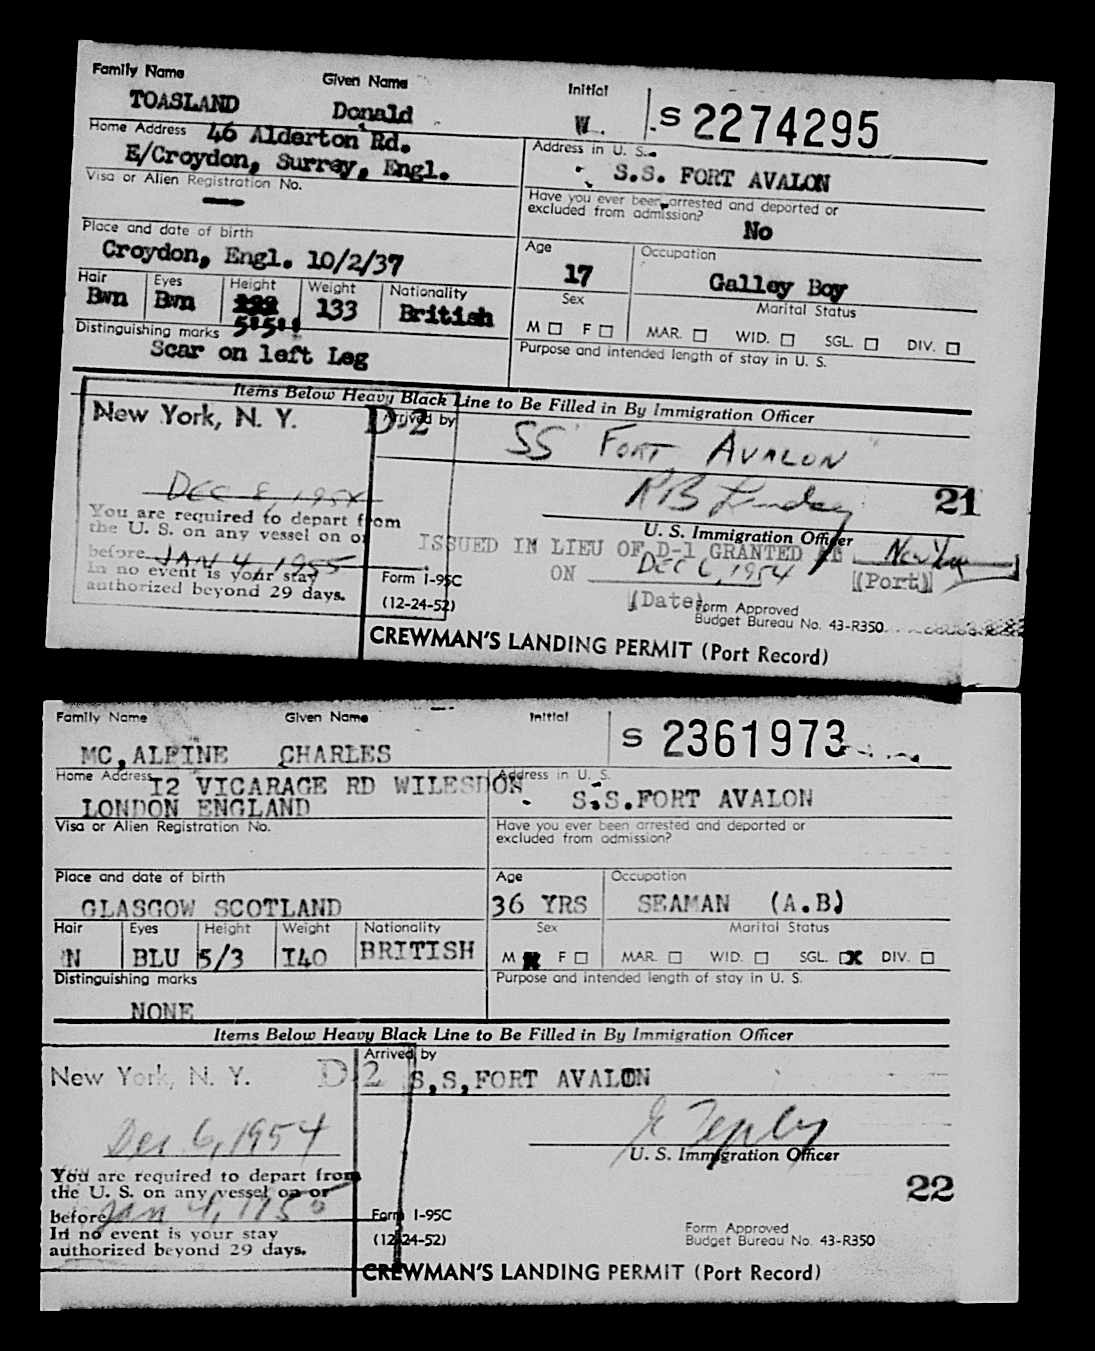 Family Name Given Name Initial
TOASLAND Donald W. S 2274295
Home Address 46 Alderton Rd.
E/Croydon, Surrey, Engl.
Address in U. S.
S.S. FORT AVALON
Visa or Alien Registration No.
—
Have you ever been arrested and deported or
excluded from admission?
No
Place and date of birth
Croydon, Engl. 10/2/37
Age Occupation
17 Galley Boy
Hair Eyes Height Weight Nationality
Bwn Bwn 5'5" 133 British
Sex Marital Status
M □ F □ MAR. □ WID. □ SGL. □ DIV. □
Distinguishing marks
Scar on left Leg
Purpose and intended length of stay in U. S.
Items Below Heavy Black Line to Be Filled in By Immigration Officer
New York, N. Y. D-2
Arrived by
SS FORT AVALON
DEC 8, 1954
21
U. S. Immigration Officer
You are required to depart from
the U. S. on any vessel on or
before JAN 4, 1955
In no event is your stay
authorized beyond 29 days.
ISSUED IN LIEU OF D-1 GRANTED New York
ON DEC 6, 1954 (Port)
(Date)
Form I-95C
(12-24-52)
Form Approved
Budget Bureau No. 43-R350.
CREWMAN'S LANDING PERMIT (Port Record)
Family Name Given Name Initial
MC,ALPINE CHARLES S 2361973
Home Address I2 VICARAGE RD WILESDON
LONDON ENGLAND
Address in U. S.
S.S.FORT AVALON
Visa or Alien Registration No.
Have you ever been arrested and deported or
excluded from admission?
Place and date of birth
GLASGOW SCOTLAND
Age Occupation
36 YRS SEAMAN (A.B)
Hair Eyes Height Weight Nationality
N BLU 5/3 I40 BRITISH
Sex Marital Status
M X F □ MAR. □ WID. □ SGL. X DIV. □
Distinguishing marks
NONE
Purpose and intended length of stay in U. S.
Items Below Heavy Black Line to Be Filled in By Immigration Officer
New York, N. Y. D-2
Arrived by
S,S,FORT AVALON
Dec 6, 1954
U. S. Immigration Officer
22
You are required to depart from
the U. S. on any vessel on or
before Jan 4, 1955
In no event is your stay
authorized beyond 29 days.
Form I-95C
(12-24-52)
Form Approved
Budget Bureau No. 43-R350
CREWMAN'S LANDING PERMIT (Port Record)